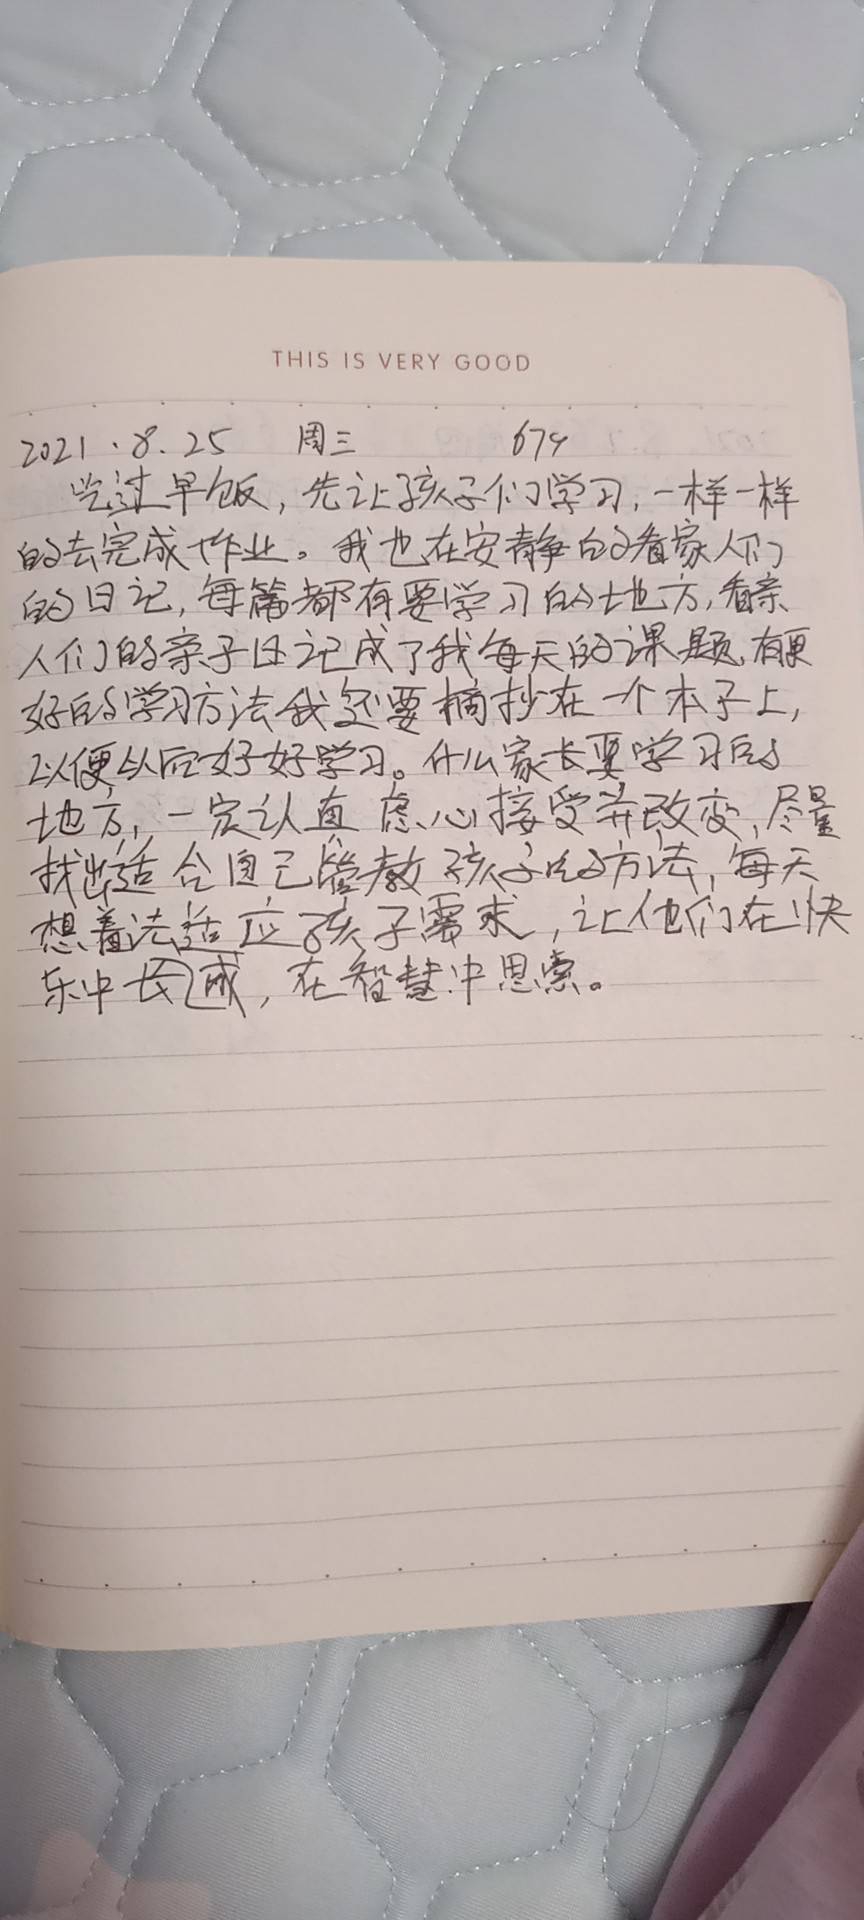 THIS IS VERY GOOD
2021.8.25 周三 679
吃过早饭,先让孩子们学习,一样一样
的去完成作业。我也在安静的看家人们
的日记,每篇都有要学习的地方,看亲
人们的亲子日记成了我每天的课题,有更
好的学习方法我还要摘抄在一个本子上,
以便以后好好学习。什么家长要学习的
地方,一定认真虚心接受并改变,尽量
找出适合自己管教孩子的方法,每天
想着法适应孩子需求,让他们在快
乐中长成,在智慧中思索。